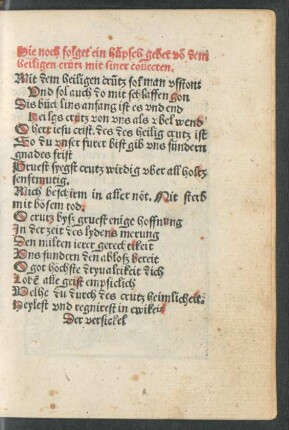 Hie noch folget ein hüpsch gebet võ dem
heiligen crütz mit siner collecten.
Mit dem heiligen crütz sol man vffston
Vnd sol auch do mit schlaffen gon
Dis büc lins anfang ist es vnd end
Heilges crutz von vns als v bel wend
O herr iesu crist. des des heilig crutz ist
So du vnser furer bist gib vns sundern
gnades frist
Gruest sygst crutz wirdig vber all holtz
senftmutig.
Mich beschirm in aller nöt. Nit sterb
mit bösem tod.
O crutz bysz gruest enige hoffnung
In der zeit des lydens merung
Den milten ierer gerech tikeit
Vns sundern den ablosz bereit
O got höchste dryualtikeit dich
Lobẽ alle geist empficlich
Welhe du durch des crutz heimlicheit
Heylest vnd regnirest in ewikeit
Der versickel